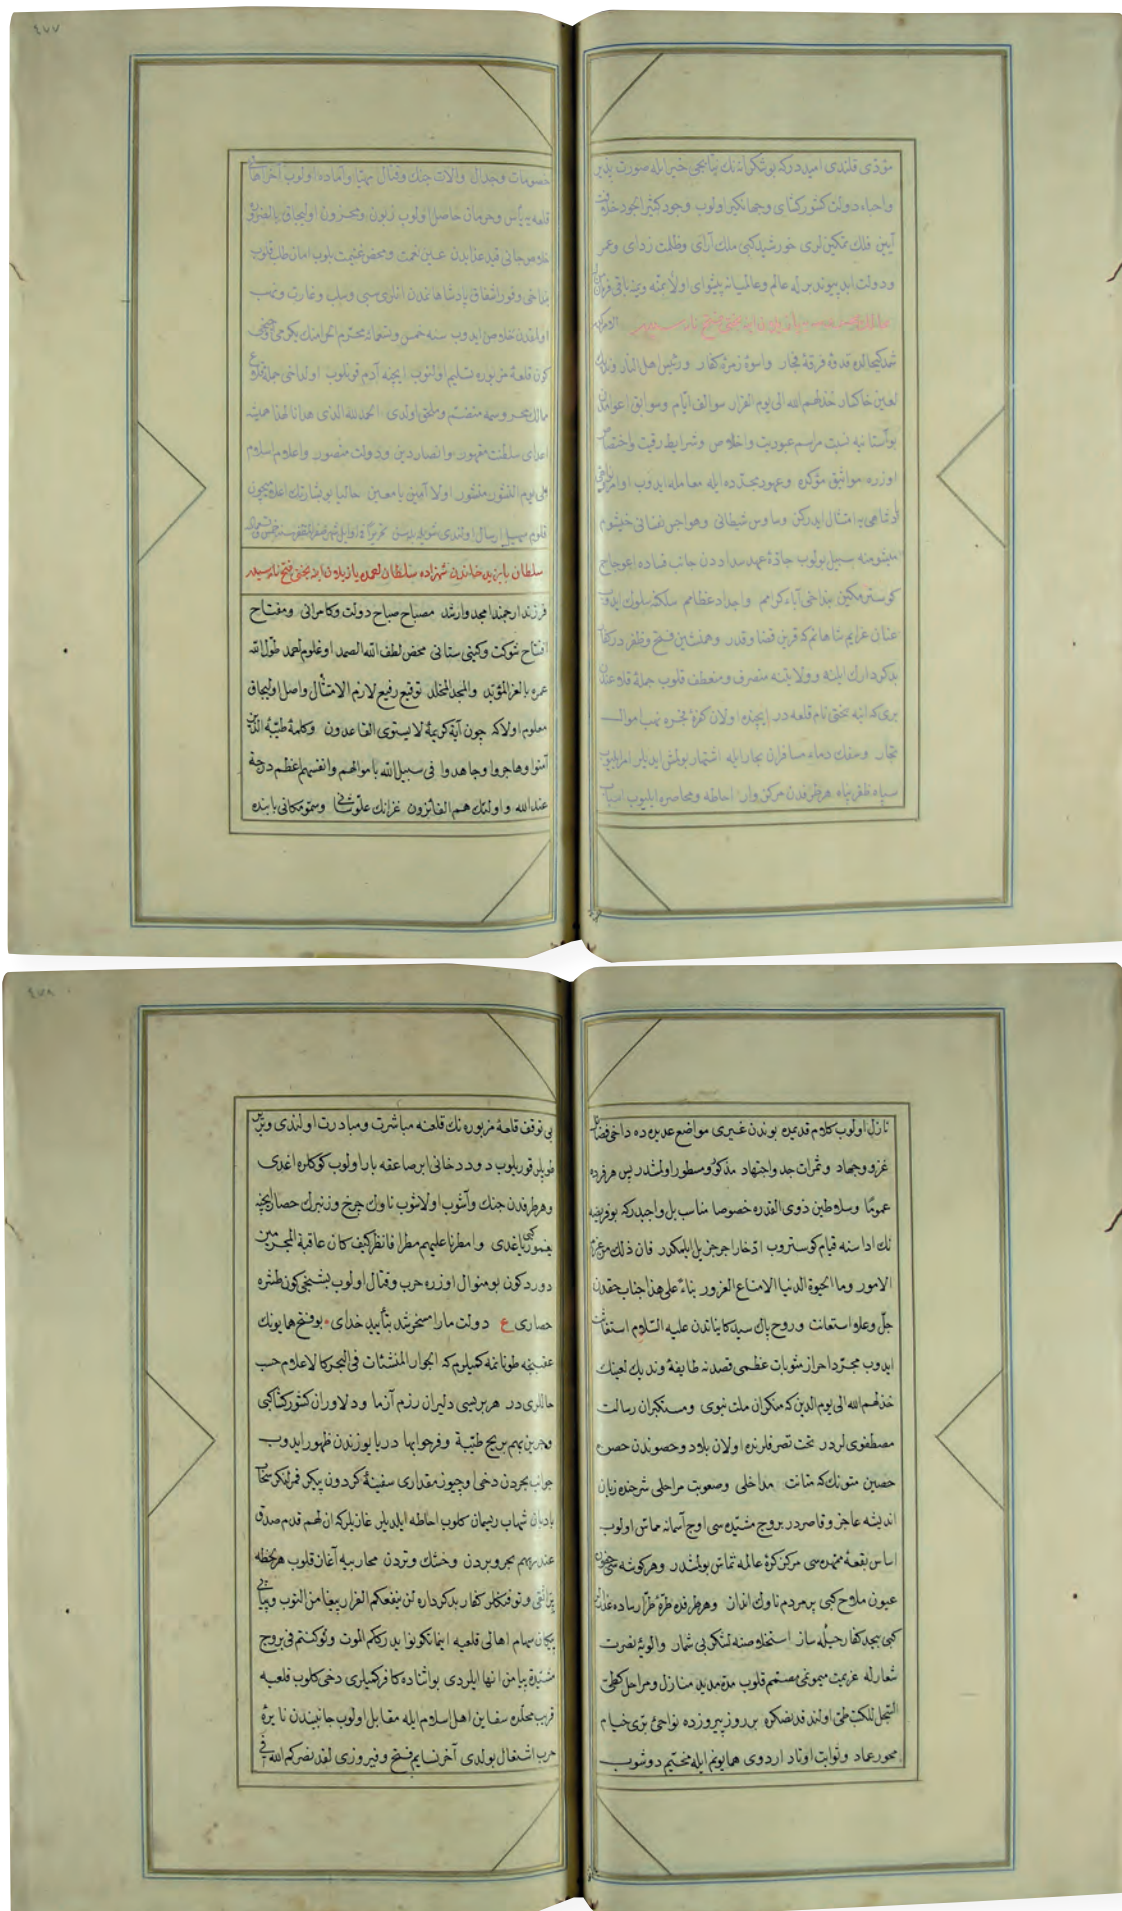 مؤدی قلندی امیددرکه بو شکرانه نك نتایجی خیر ایله صورت پذیر
واحباء دولت کشورکشای وجهانکیر اولوب وجود کثیر الجود
آیین فلك تمکینلری خورشید کبی ملك آرای وظلمت زدای وعمر
ودولت ابد پیوند برله عالم وعالمیانه پیشوای اولا بمنه
شمدکیحالده قدوۀ فرقۀ فجار واسوۀ زمرۀ کفار ورئیس اهل النار
لعین خاکسار خذلهم الله الی یوم القرار سوالف ایام وسوابق اعوامدن
بو آستانیه نسبت مراسم عبودیت واخلاص وشرایط رقیت واختصاص
اوزره مواثیق مؤکده وعهود مجدده ایله معامله ایدوب
پادشاهی یه امتثال ایدرکن وساوس شیطانی وهواجس نفسانی
سبیل بولوب جادۀ عهد سداددن جانب فساده اعوجاج
کوسترمکین بنداخی آباء کرامم واجداد عظامم مسلکنه سلوك ایدوب
عنان عزایم شاهانم که قرین قضا وقدر وهمنشین فتح وظفردر کفار
بدکوداره ایلنه وولایتنه منصرف ومنعطف قلوب جملۀ قلاعندن
بری که اینه بختی نام قلعه در ایچنده اولان کفرۀ فجره نهب اموال
تجار وسفك دماء مسافران بحار ایله اشتهار بولمش ایدیلر
سپاه ظفرپناه هر طرفدن مرکزوار احاطه ومحاصره ایلیوب اسباب
٤٧٧
خصومات وجدال والات جنك وقتال مهیا وآماده اولوب آخر اهالی
قلعه یه یأس وحرمان حاصل اولوب زبون ومحزون اولیجاق بالضروره
خلاص جانی قید عذابدن عین نعمت ومحض غنیمت بلوب امان طلب قلوب
بنداخی وفور اشفاق پادشاهانه مدن انلری سبی وسلب وغارت ونهب
اولمقدن خلاص ایدوب سنه خمس وتسعمائه محرم الحرامنك یکرمی
کون قلعۀ مزبوره تسلیم اولنوب ایچنه آدم قونلوب اولداخی جملۀ قلاع
ممالك محروسه منضم وملحق اولدی الحمد لله الذی هدانا لهذا همیشه
اعدای سلطنت مقهور وانصار دین ودولت منصور واعلام اسلام
الی یوم النشور منشور اولا آمین یا معین حالیا بو بشارتك اعلامیچون
سلطان بایزید خاندن شهزاده سلطان احمده یازیلان اینه بختی فتح نامه سیدر
فرزند ارجمند امجد وارشد مصباح صباح دولت وکامرانی ومفتاح
افتتاح شوکت وکیتی ستانی محض لطف الله الصمد اوغلوم احمد طول الله
عمره بالعز المؤبد والمجد المخلد توقیع رفیع لازم الامتثال واصل اولیجاق
معلوم اولا که چون آیۀ کریمۀ لا یستوی القاعدون وکلمۀ طیبۀ الذین
آمنوا وهاجروا وجاهدوا فی سبیل الله باموالهم وانفسهم اعظم درجة
عند الله واولئك هم الفائزون غزانك علو شانی وسمو مکانی بابنده
نازل اولوب کلام قدیمده بوندن غیری مواضع عدیده ده داخی فضایل
غزو وجهاد وثمرات جد واجتهاد مذکور ومسطور اولمشدر پس هر فرده
عموما وسلاطین ذوی القدره خصوصا مناسب بل واجبدرکه بو فریضه
نك اداسنه قیام کوستروب ادخار اجر جزیل ایلیکدر فان ذلك من عزم
الامور وما الحیوة الدنیا الا متاع الغرور بناء علی هذا جناب حقدن
جل وعلا استعانت وروح پاك سید کایناتدن علیه السلام استفاضت
ایدوب مجرد احراز مثوبات عظمی قصدنه طایفۀ وندیك لعینك
خذلهم الله الی یوم الدین که منکران ملت نبوی ومستکبران رسالت
مصطفوی لردر تحت تصرفلرنده اولان بلاد وحصوندن حصن
حصین متونك که متانت مداخلی وصعوبت مراحلی شرحنده زبان
اندیشه عاجز وقاصردر بروج مشیده سی اوج آسمانه مماس اولوب
اساس بقعۀ ممهده سی مرکز کرۀ عالمه تماس بولمشدر وهر کوشه سی
عیون ملاح کبی پر مردم ناوك انداز وهر طرفده طرۀ طرار
کبی بیحد کفار حیله ساز استخلاصنه لشکر بی شمار والویۀ نصرت
شعارله عزیمت میمونمی مصمم قلوب مدة مدید منازل ومراحل کطی
السجل للکتب طی اولندقدنصکره بر روز پیروزده نواحئ بری خیام
محور عماد وثوابت اوتاد اردوی همایونم ایله مخیم دوشوب
٤٧٨
بی توقف قلعۀ مزبوره نك قلعنه مباشرت ومبادرت اولندی
طوپلر قوریلوب دود دخانی ابر صاعقه بار اولوب کوکلره اغدی
وهر طرفدن جنك وآشوب اولاشوب ناوك چرخ وزنبرك حصار ایچنه
یغمور کبی یاغدی وامطرنا علیهم مطرا فانظر کیف کان عاقبة المجرمین
دورد کون بو منوال اوزره حرب وقتال اولوب بشنجی کون طشره
حصاری ع دولت ما را مسخر شد بتأیید خدای بو فتح همایونك
عقبنجه طونانمه کمیلرم که الجوار المنشئات فی البحر کالاعلام حسب
حاللری در هر بریسی دلیران رزم آزما ودلاوران کشورکشا کبی
وجرین بهم بریح طیبة وفرحوا بها دریا یوزندن ظهور ایدوب
جوانب بحردن دخی اوچیوز مقداری سفینۀ کردون پیکر قمر لنکر
بادبان شهاب ریسمان کلوب احاطه ایلدیلر غازیلر که ان لهم قدم صدق
عند ربهم بحر وبردن وخشك وتردن محاربیه آغاز قلوب هر لحظه
توپ وتوفنکلر کفار بدکرداره لن ینفعکم الفرار
پیکان سهام اهالی قلعیه اینما تکونوا یدرککم الموت ولو کنتم فی بروج
مشیدة پیامن انها ایلردی بو اثناده کافر کمیلری دخی کلوب قلعیه
قریب محلده سفاین اهل اسلام ایله مقابل اولوب جانبیندن نایرۀ
حرب اشتعال بولدی آخر نسایم فتح وفیروزی لقد نصرکم الله فی